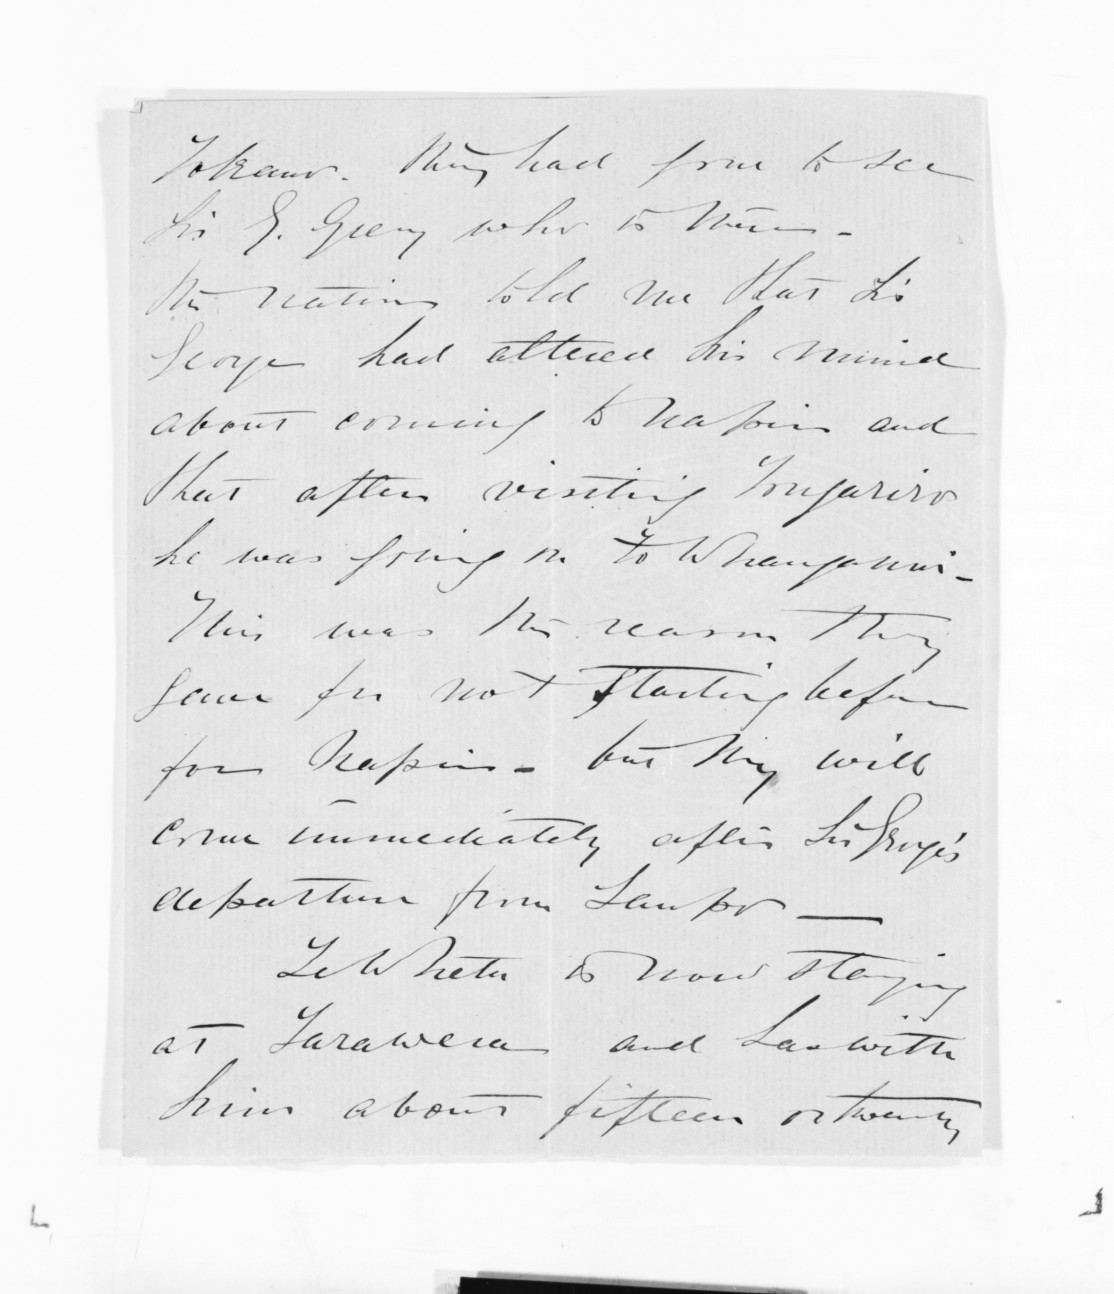 Tokaano. They had gone to see
Sir G. Grey who is there -
The natives told me that Sir
George had altered his mind
about coming to Napier and
that after visiting Tongariro
he was going on to Whanganui -
This was the reason they
gave for not starting before
for Napier - but they will
come immediately after Sir George's
departure from Taupo —
Te Wheta is now staying
at Tarawera and has with
him about fifteen or twenty